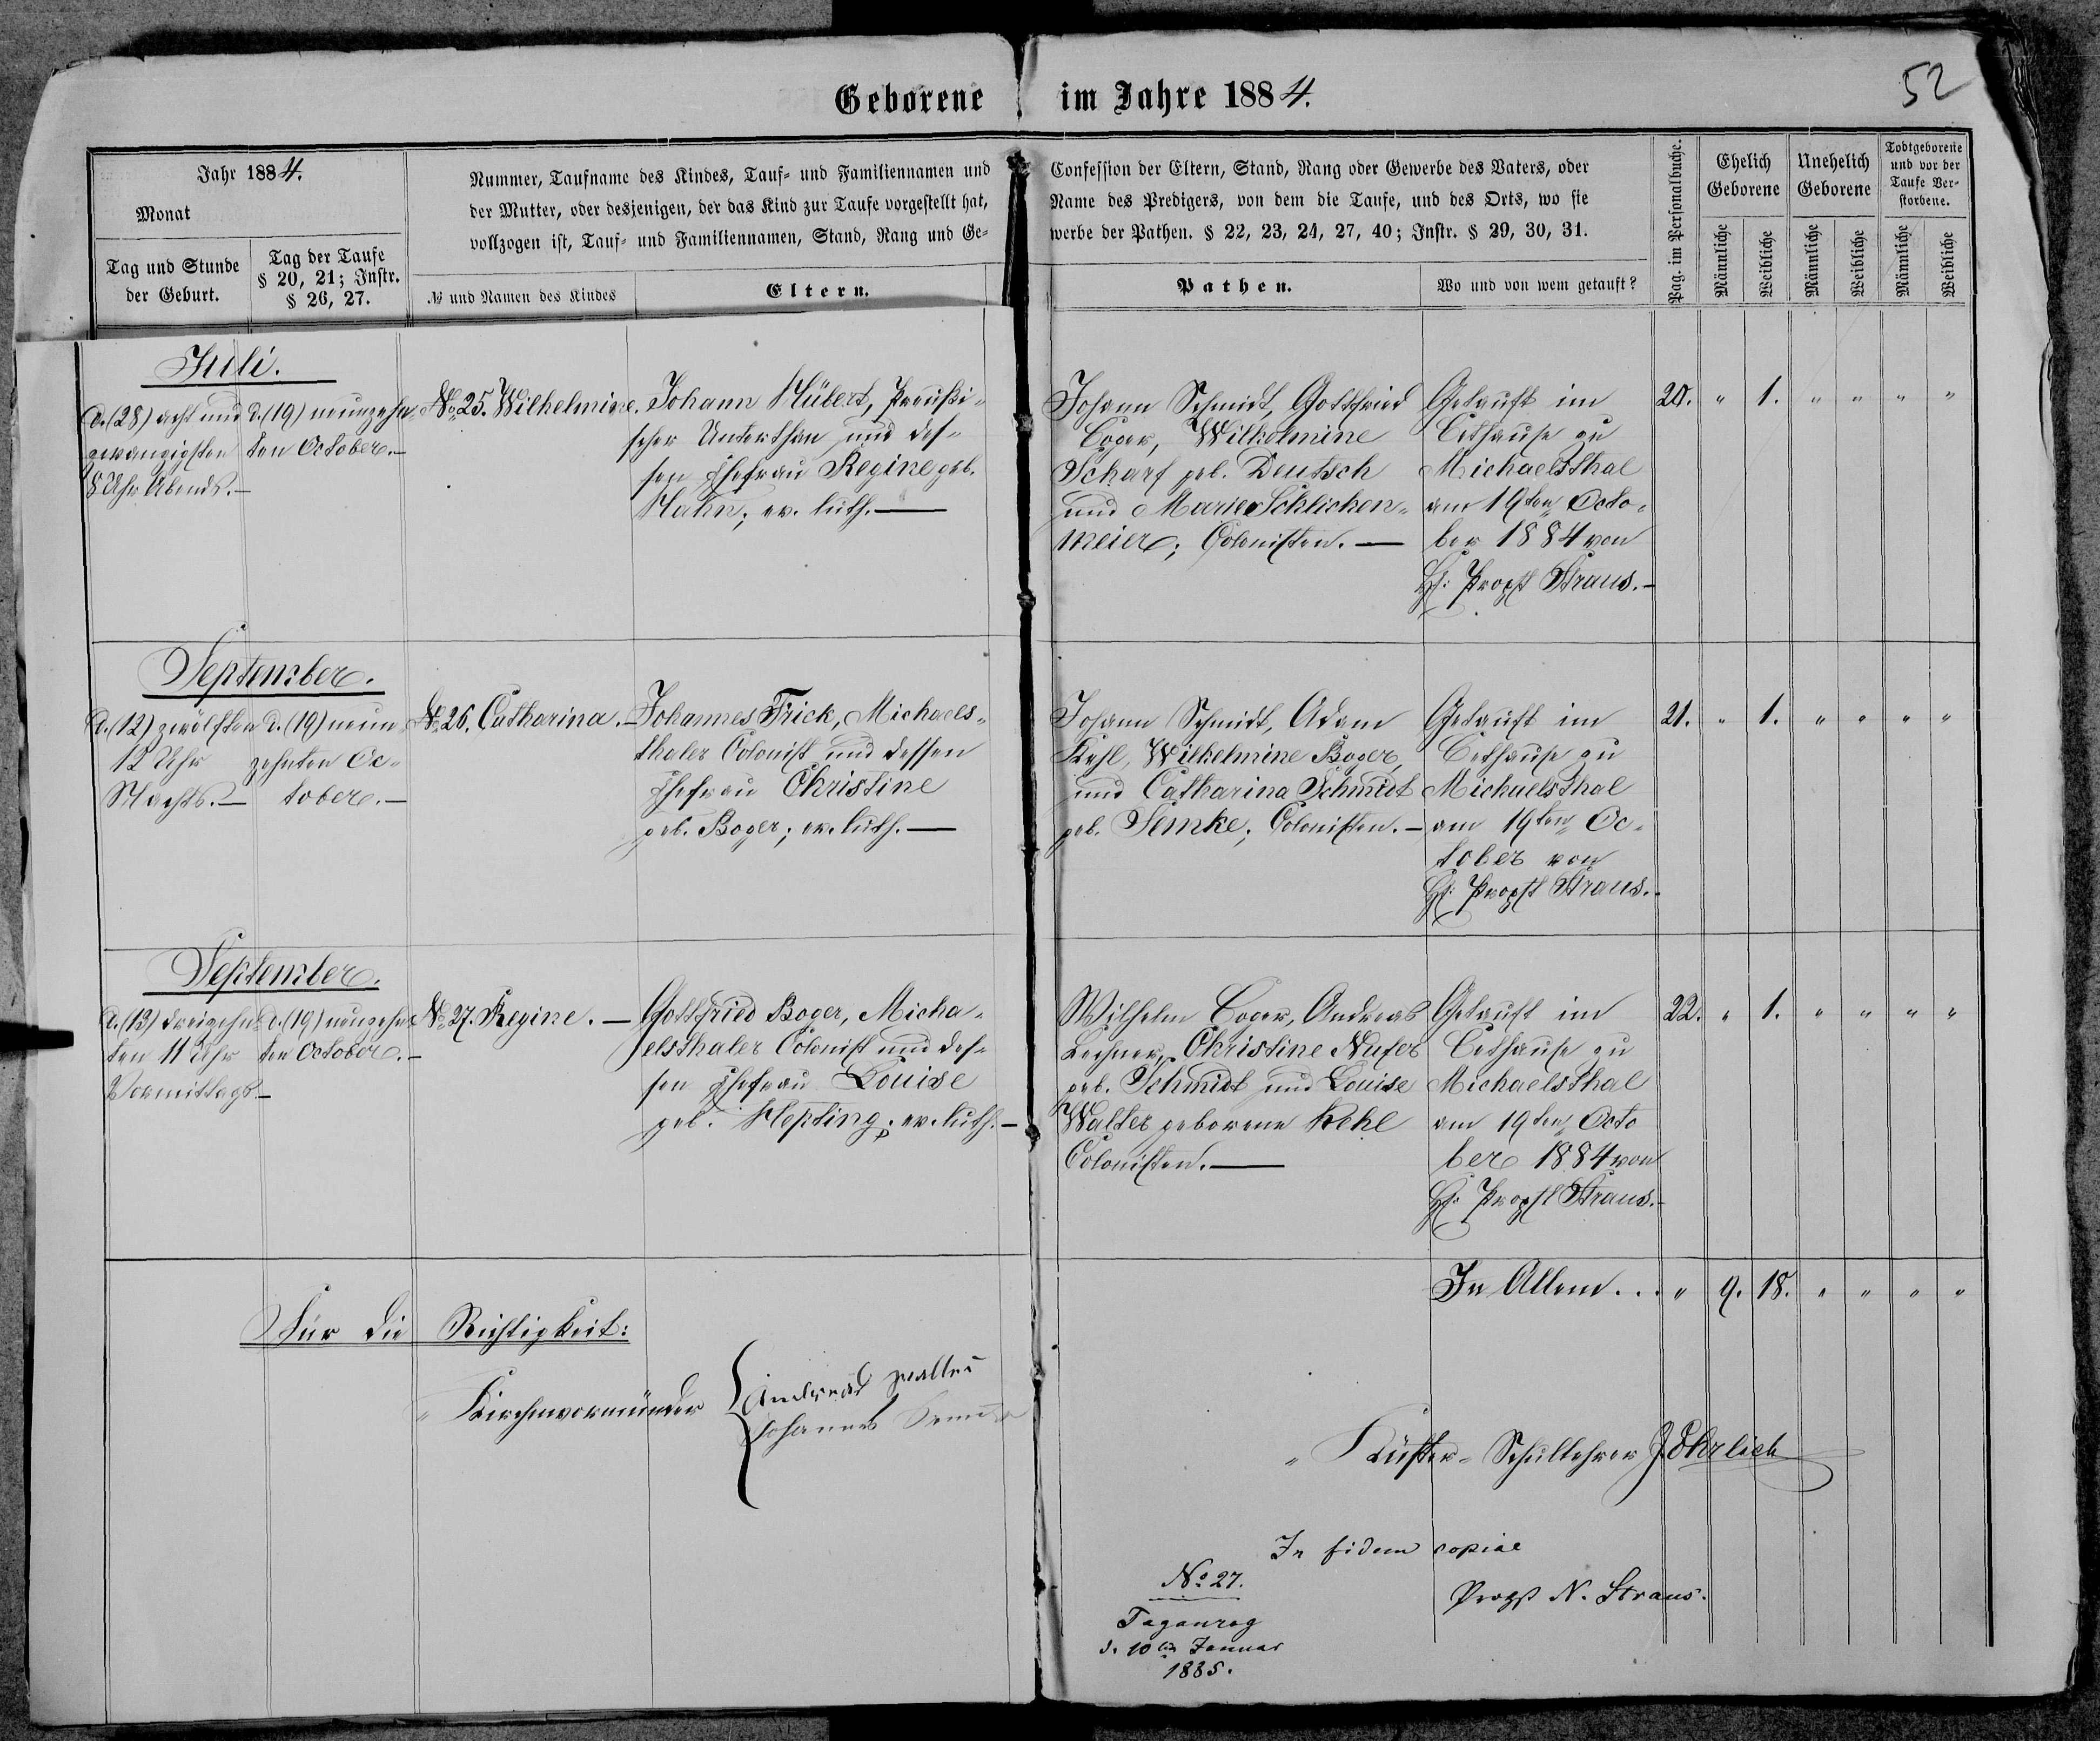 52
Geborene im Jahre 1884.
Jahr 1884.
Monat
Tag und Stunde
der Geburt.
Tag der Taufe
§ 20, 21; Instr.
§ 26, 27.
Nummer, Taufname des Kindes, Tauf- und Familiennamen und
der Mutter, oder desjenigen, der das Kind zur Taufe vorgestellt hat,
vollzogen ist, Tauf- und Familiennamen, Stand, Rang und Ge-
№ und Namen des Kindes
Eltern.
Confession der Eltern, Stand, Rang oder Gewerbe des Vaters, oder
Name des Predigers, von dem die Taufe, und des Orts, wo sie
werbe der Pathen. § 22, 23, 24, 27, 40; Instr. § 29, 30, 31.
Pathen.
Wo und von wem getauft?
Pag. im Personalbuche.
Ehelich
Geborene
Unehelich
Geborene
Todtgeborene
und vor der
Taufe Ver-
storbene.
Männliche
Weibliche
Männliche
Weibliche
Männliche
Weibliche
Juli.
d. (28) acht und
zwanzigsten
8 Uhr Abends.—
d. (19) neunzehn-
ten October.—
№ 25. Wilhelmine.
Johann Hübert, Preußi-
scher Unterthan und des-
sen Ehefrau Regine geb.
Hahn; ev. luth.—
Johann Schmidt, Gottfried
Boger, Wilhelmine
Scharf geb. Deutsch
und Marie Schlichen-
meier; Colonisten.—
Getauft im
Bethause zu
Michaelsthal
am 19ten Octo-
ber 1884 von
H: Propst Straus.—
20. " 1. " " " "
September.
d. (12) zwölften
12 Uhr
Nachts.—
d. (19) neun-
zehnten Oc-
tober.—
№ 26. Catharina.—
Johannes Frick, Michaels-
thaler Colonist und dessen
Ehefrau Christine
geb. Boger; ev. luth.—
Johann Schmidt, Adam
Kehl, Wilhelmine Boger,
und Catharina Schmidt
geb. Semke; Colonisten.—
Getauft im
Bethause zu
Michaelsthal
am 19ten Oc-
tober von
H: Propst Straus.—
21. " 1. " " " "
September.
d. (13) dreizehn-
ten 11 Uhr
Vormittags.—
d. (19) neunzehn-
ten October.—
№ 27. Regine.—
Gottfried Boger, Micha-
elsthaler Colonist und des-
sen Ehefrau Louise
geb. Hepting; ev. luth.—
Wilhelm Boger, Andreas
Lechner, Christine Nufer
geb. Schmidt und Louise
Walter geborene Kehl
Colonisten.—
Getauft im
Bethause zu
Michaelsthal
am 19ten Octo
ber 1884 von
H: Propst Straus.—
22. " 1. " " " "
In Allem... " 9. 18. " " " "
Für die Richtigkeit:
" Kirchenvormünder
Andreas Walter
Johannes
" Küster-Schullehrer J. Ehrlich
In fidem copiae
Propst N. Straus.
№ 27.
Taganrog
d. 10ten Januar
1885.